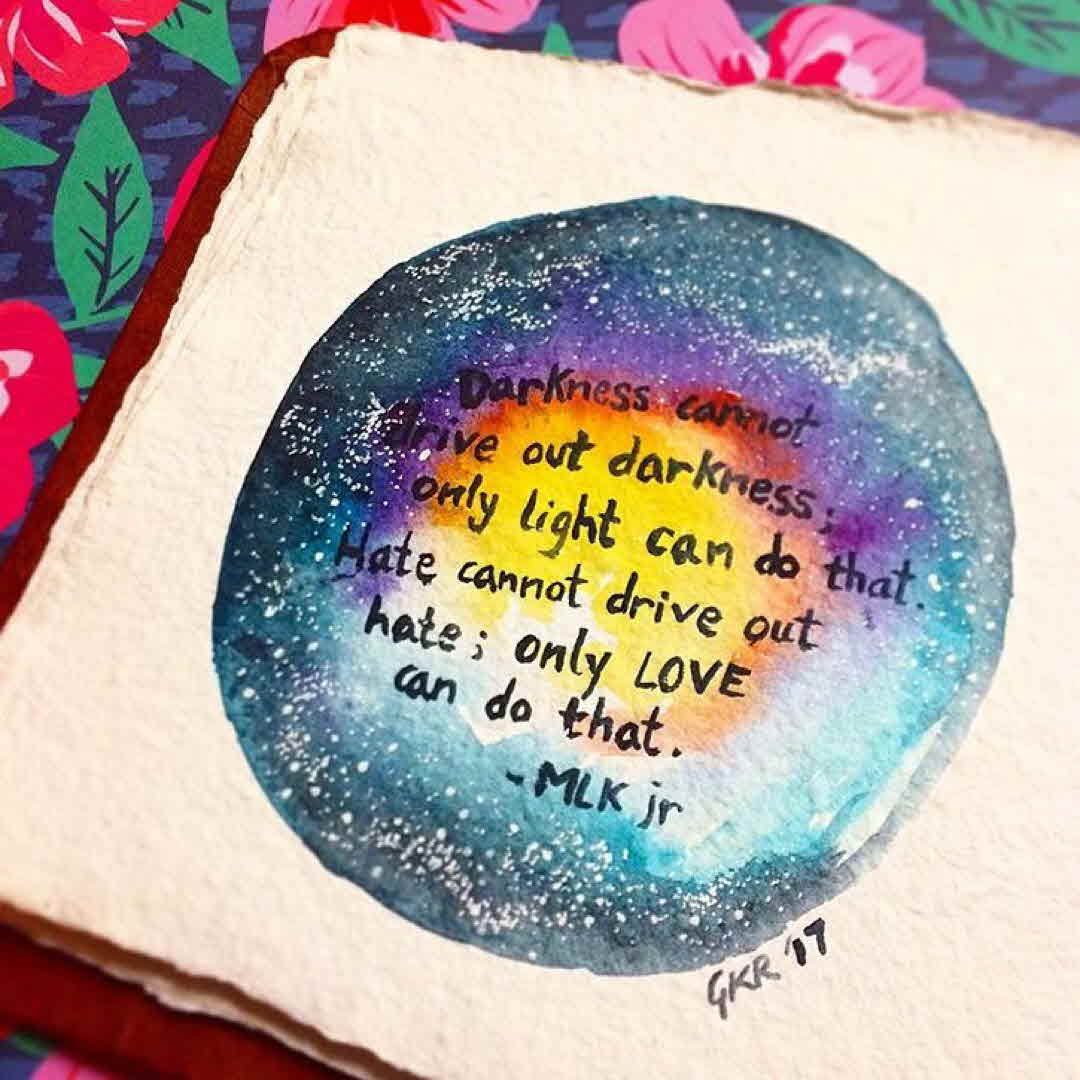 Darkness cannot
drive out darkness;
only light can do that.
Hate cannot drive out
hate; only LOVE
can do that.
- MLK jr
GKR '17